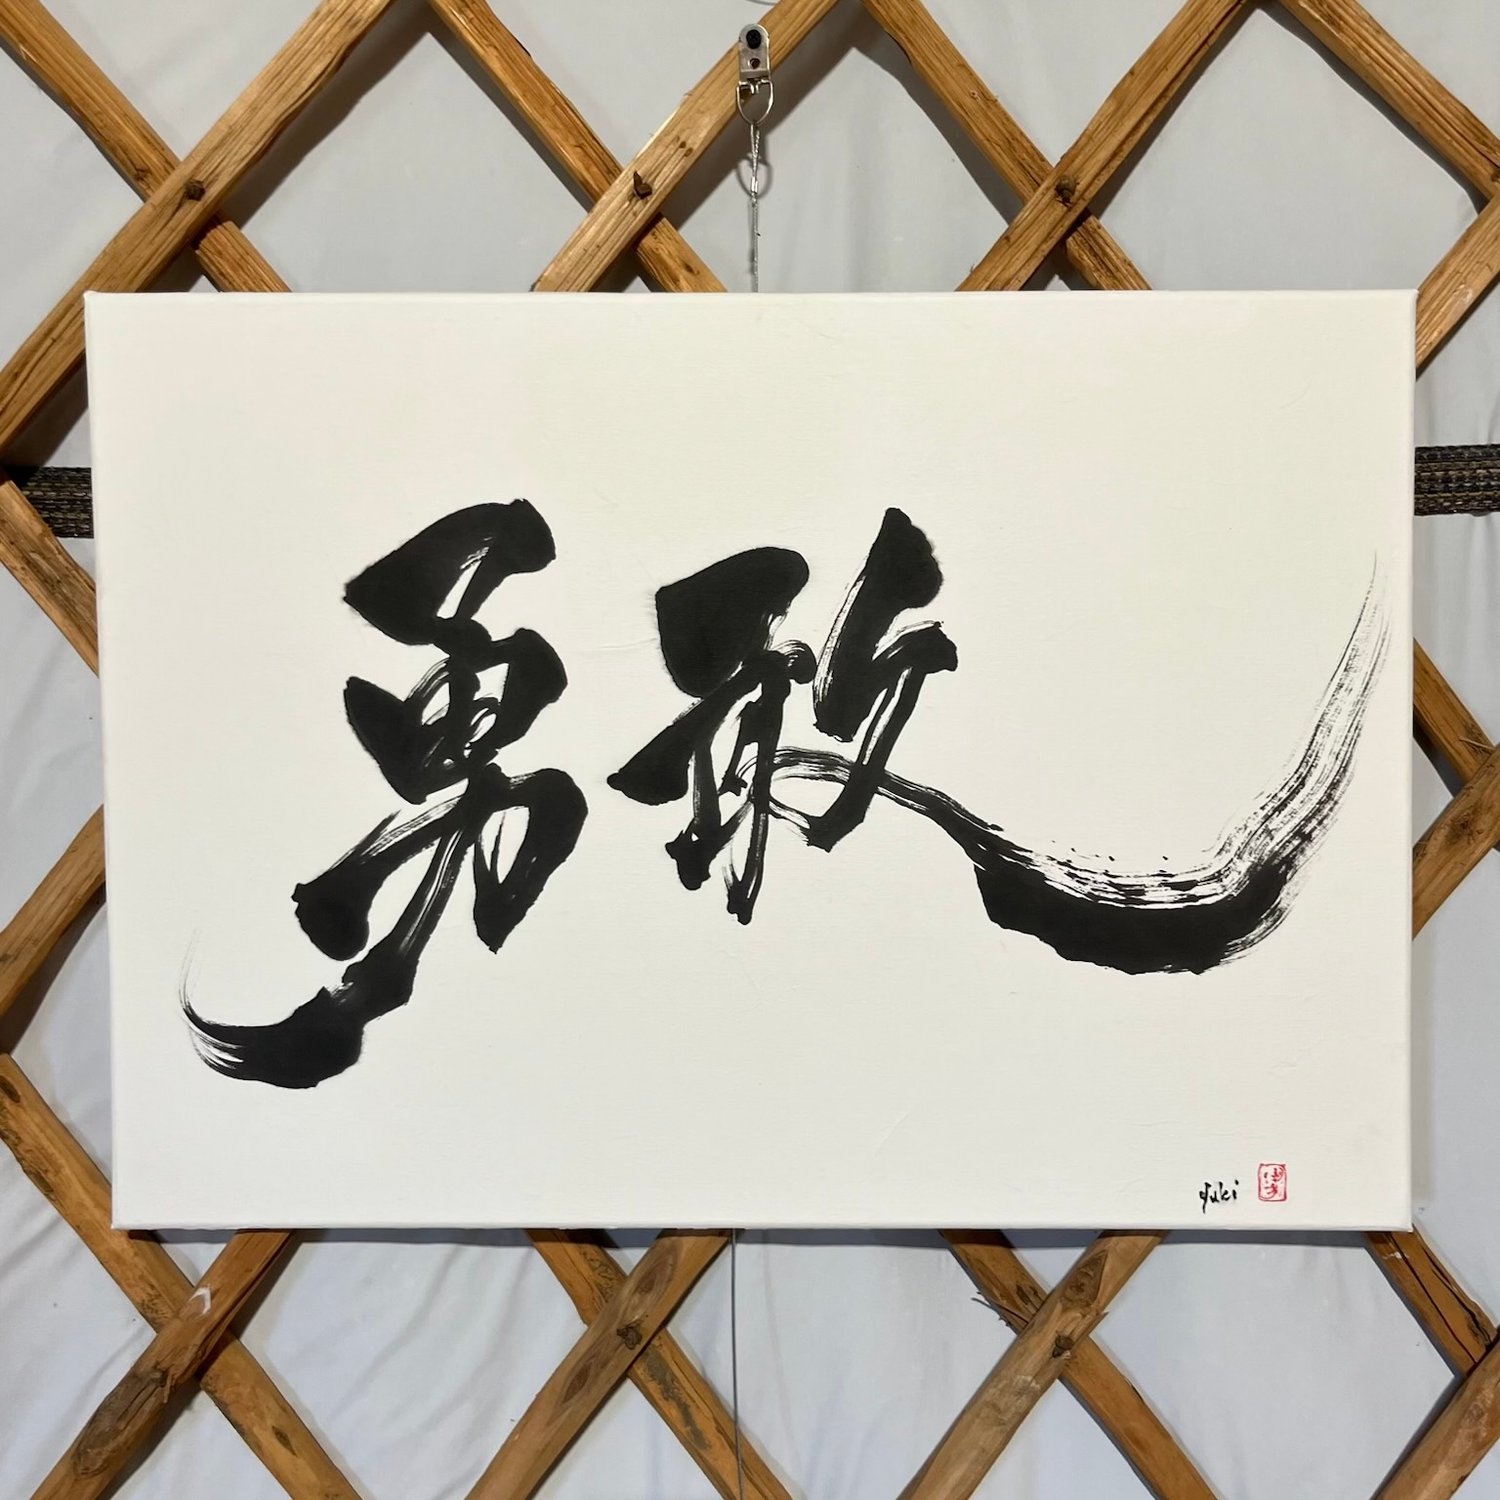 勇敢
Yuki